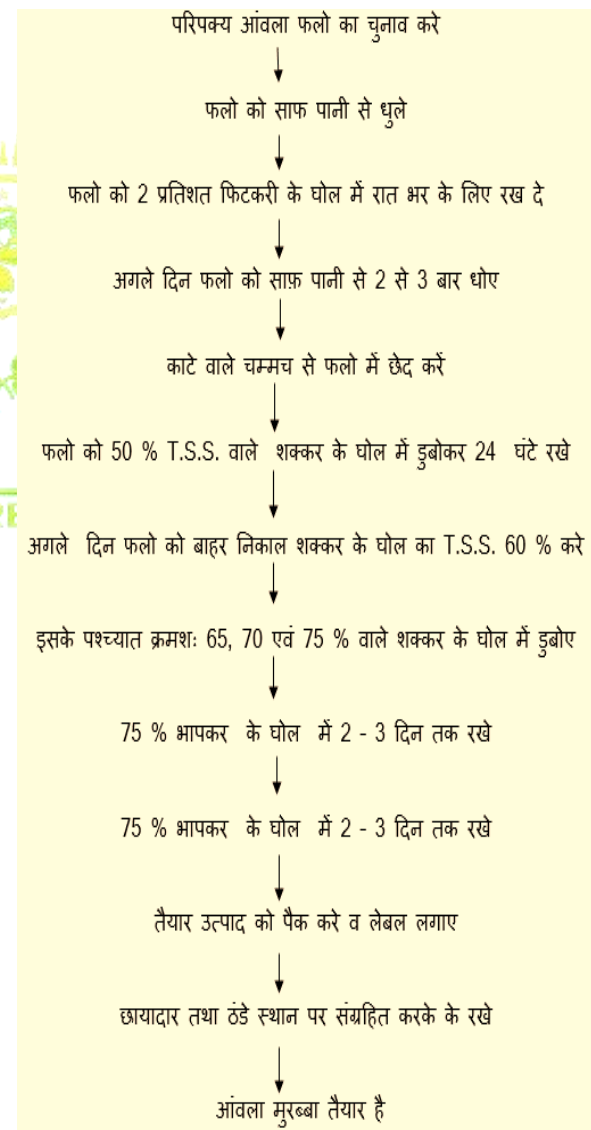 परिपक्य आंवला फलो का चुनाव करे
फलो को साफ पानी से धुले
फलो को 2 प्रतिशत फिटकरी के घोल में रात भर के लिए रख दे
अगले दिन फलो को साफ़ पानी से 2 से 3 बार धोए
काटे वाले चम्मच से फलो में छेद करें
फलो को 50 % T.S.S. वाले शक्कर के घोल में डुबोकर 24 घंटे रखे
अगले दिन फलो को बाहर निकाल शक्कर के घोल का T.S.S. 60 % करे
इसके पश्च्यात क्रमशः 65, 70 एवं 75 % वाले शक्कर के घोल में डुबोए
75 % भापकर के घोल में 2 - 3 दिन तक रखे
75 % भापकर के घोल में 2 - 3 दिन तक रखे
तैयार उत्पाद को पैक करे व लेबल लगाए
छायादार तथा ठंडे स्थान पर संग्रहित करके के रखे
आंवला मुरब्बा तैयार है